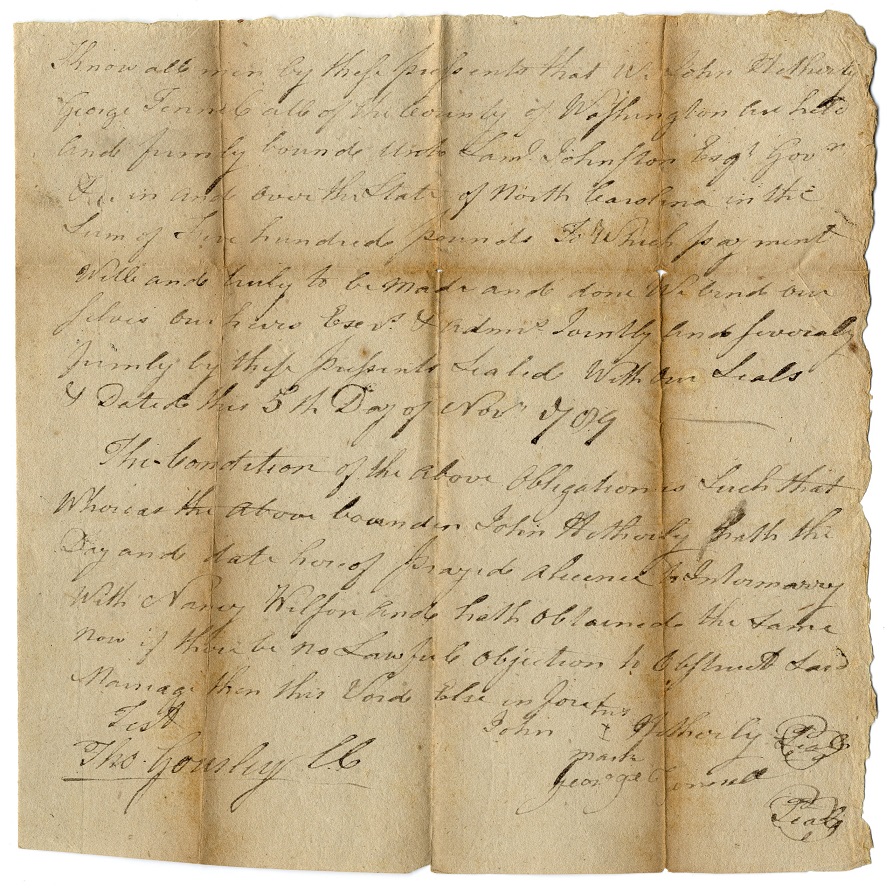 Know all men by these presents that We John Hetherly
George Fennel all of the County of Washington are held
and firmly bound unto Saml. Johnston Esqr. Govr.
&c. in and over the State of North Carolina in the
Sum of five hundred pounds To Which payment
Well and truly to be made and done We bind our
selves our heirs Exers. & Admrs. Jointly and severally
firmly by these presents Sealed With our Seals
& Dated this 5th Day of Novr. 1789
The Condition of the above Obligation is Such that
Whereas the above bounden John Hetherly hath this
Day and date hereof prayed a licence to Intermarry
With Nancy Wilson and hath Obtained the Same
now if there be no Lawful objection to obstruct said
Marriage then this Void Else in force
Test
John his Hetherly Seal
mark
Tho. Gourley CC
George Fennel
Seal